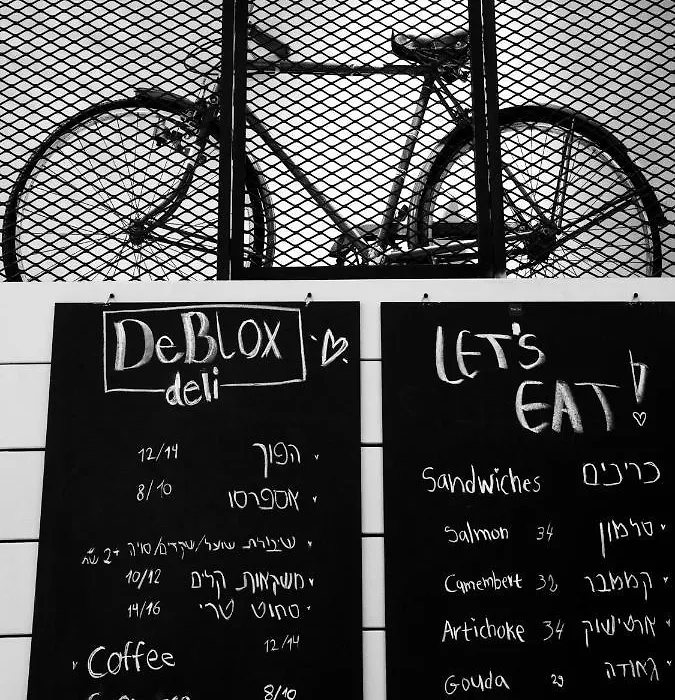 DeBLOX
deli
הפוך 12/14
אספרסו 8/10
שיבולת שועל/שקדים/סויה +2 שח
משקאות קלים 10/12
סחוט טרי 14/16
Coffee 12/14
8/10
LET'S
EAT!
Sandwiches כריכים
Salmon 34 סלמון
Camembert 32 קממבר
Artichoke 34 ארטישוק
Gouda 29 גאודה